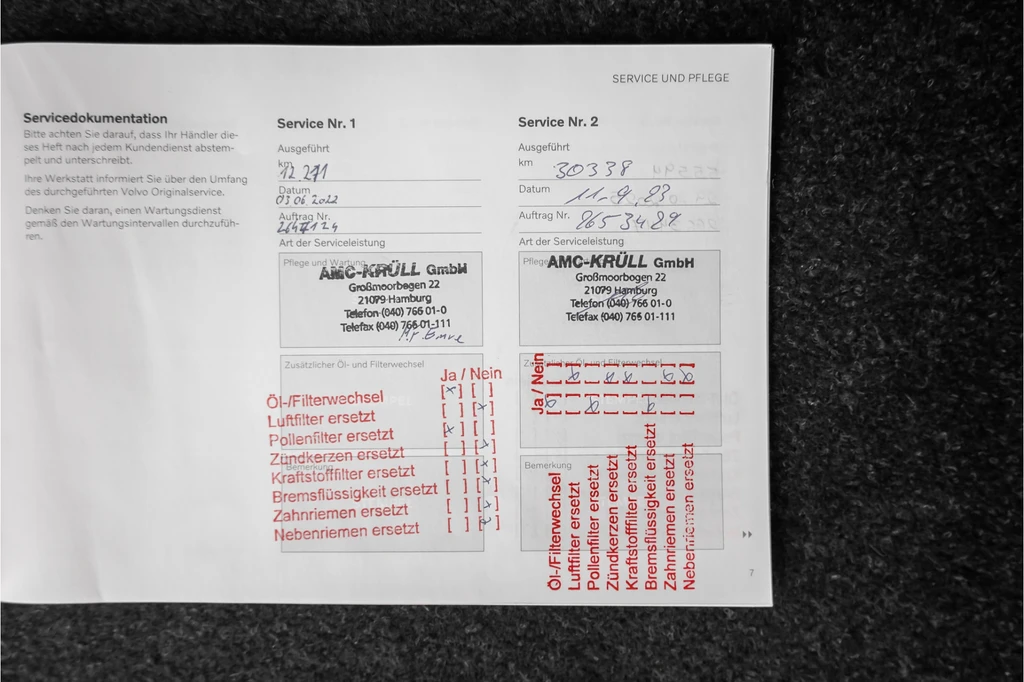 SERVICE UND PFLEGE
Servicedokumentation
Bitte achten Sie darauf, dass Ihr Händler die-
ses Heft nach jedem Kundendienst abstem-
pelt und unterschreibt.
Ihre Werkstatt informiert Sie über den Umfang
des durchgeführten Volvo Originalservice.
Denken Sie daran, einen Wartungsdienst
gemäß den Wartungsintervallen durchzufüh-
ren.
Service Nr. 1
Ausgeführt
km 12.271
Datum 03 06 2022
Auftrag Nr.
Art der Serviceleistung
Pflege und Wartung
AMC-KRÜLL GmbH
Großmoorbogen 22
21079 Hamburg
Telefon (040) 766 01-0
Telefax (040) 766 01-111
Zusätzlicher Öl- und Filterwechsel
Ja / Nein
Öl-/Filterwechsel [x] [ ]
Luftfilter ersetzt [ ] [x]
Pollenfilter ersetzt [x] [ ]
Zündkerzen ersetzt [ ] [x]
Kraftstofffilter ersetzt [ ] [x]
Bremsflüssigkeit ersetzt [ ] [x]
Zahnriemen ersetzt [ ] [x]
Nebenriemen ersetzt [ ] [x]
Bemerkung
Service Nr. 2
Ausgeführt
km 30338
Datum 11-9.23
Auftrag Nr. 8653489
Art der Serviceleistung
Pflege
AMC-KRÜLL GmbH
Großmoorbogen 22
21079 Hamburg
Telefon (040) 766 01-0
Telefax (040) 766 01-111
Zusätzlicher Öl- und Filterwechsel
Ja / Nein
Öl-/Filterwechsel [x] [ ]
Luftfilter ersetzt [ ] [x]
Pollenfilter ersetzt [x] [ ]
Zündkerzen ersetzt [ ] [x]
Kraftstofffilter ersetzt [ ] [x]
Bremsflüssigkeit ersetzt [x] [ ]
Zahnriemen ersetzt [ ] [x]
Nebenriemen ersetzt [ ] [x]
Bemerkung
7